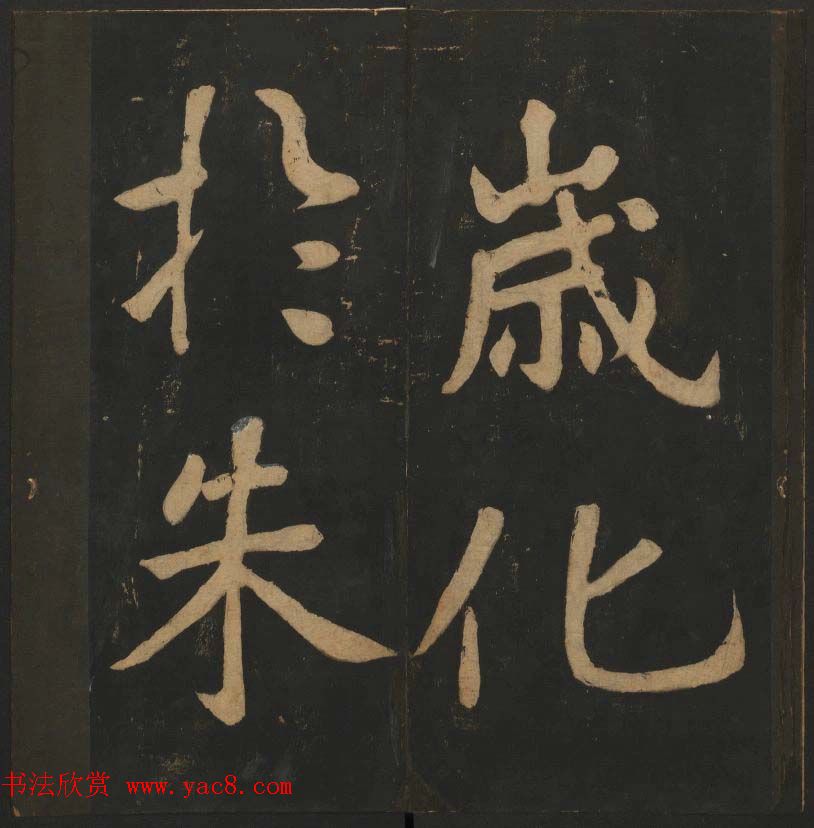 歳化
於朱
书法欣赏 www.yac8.com